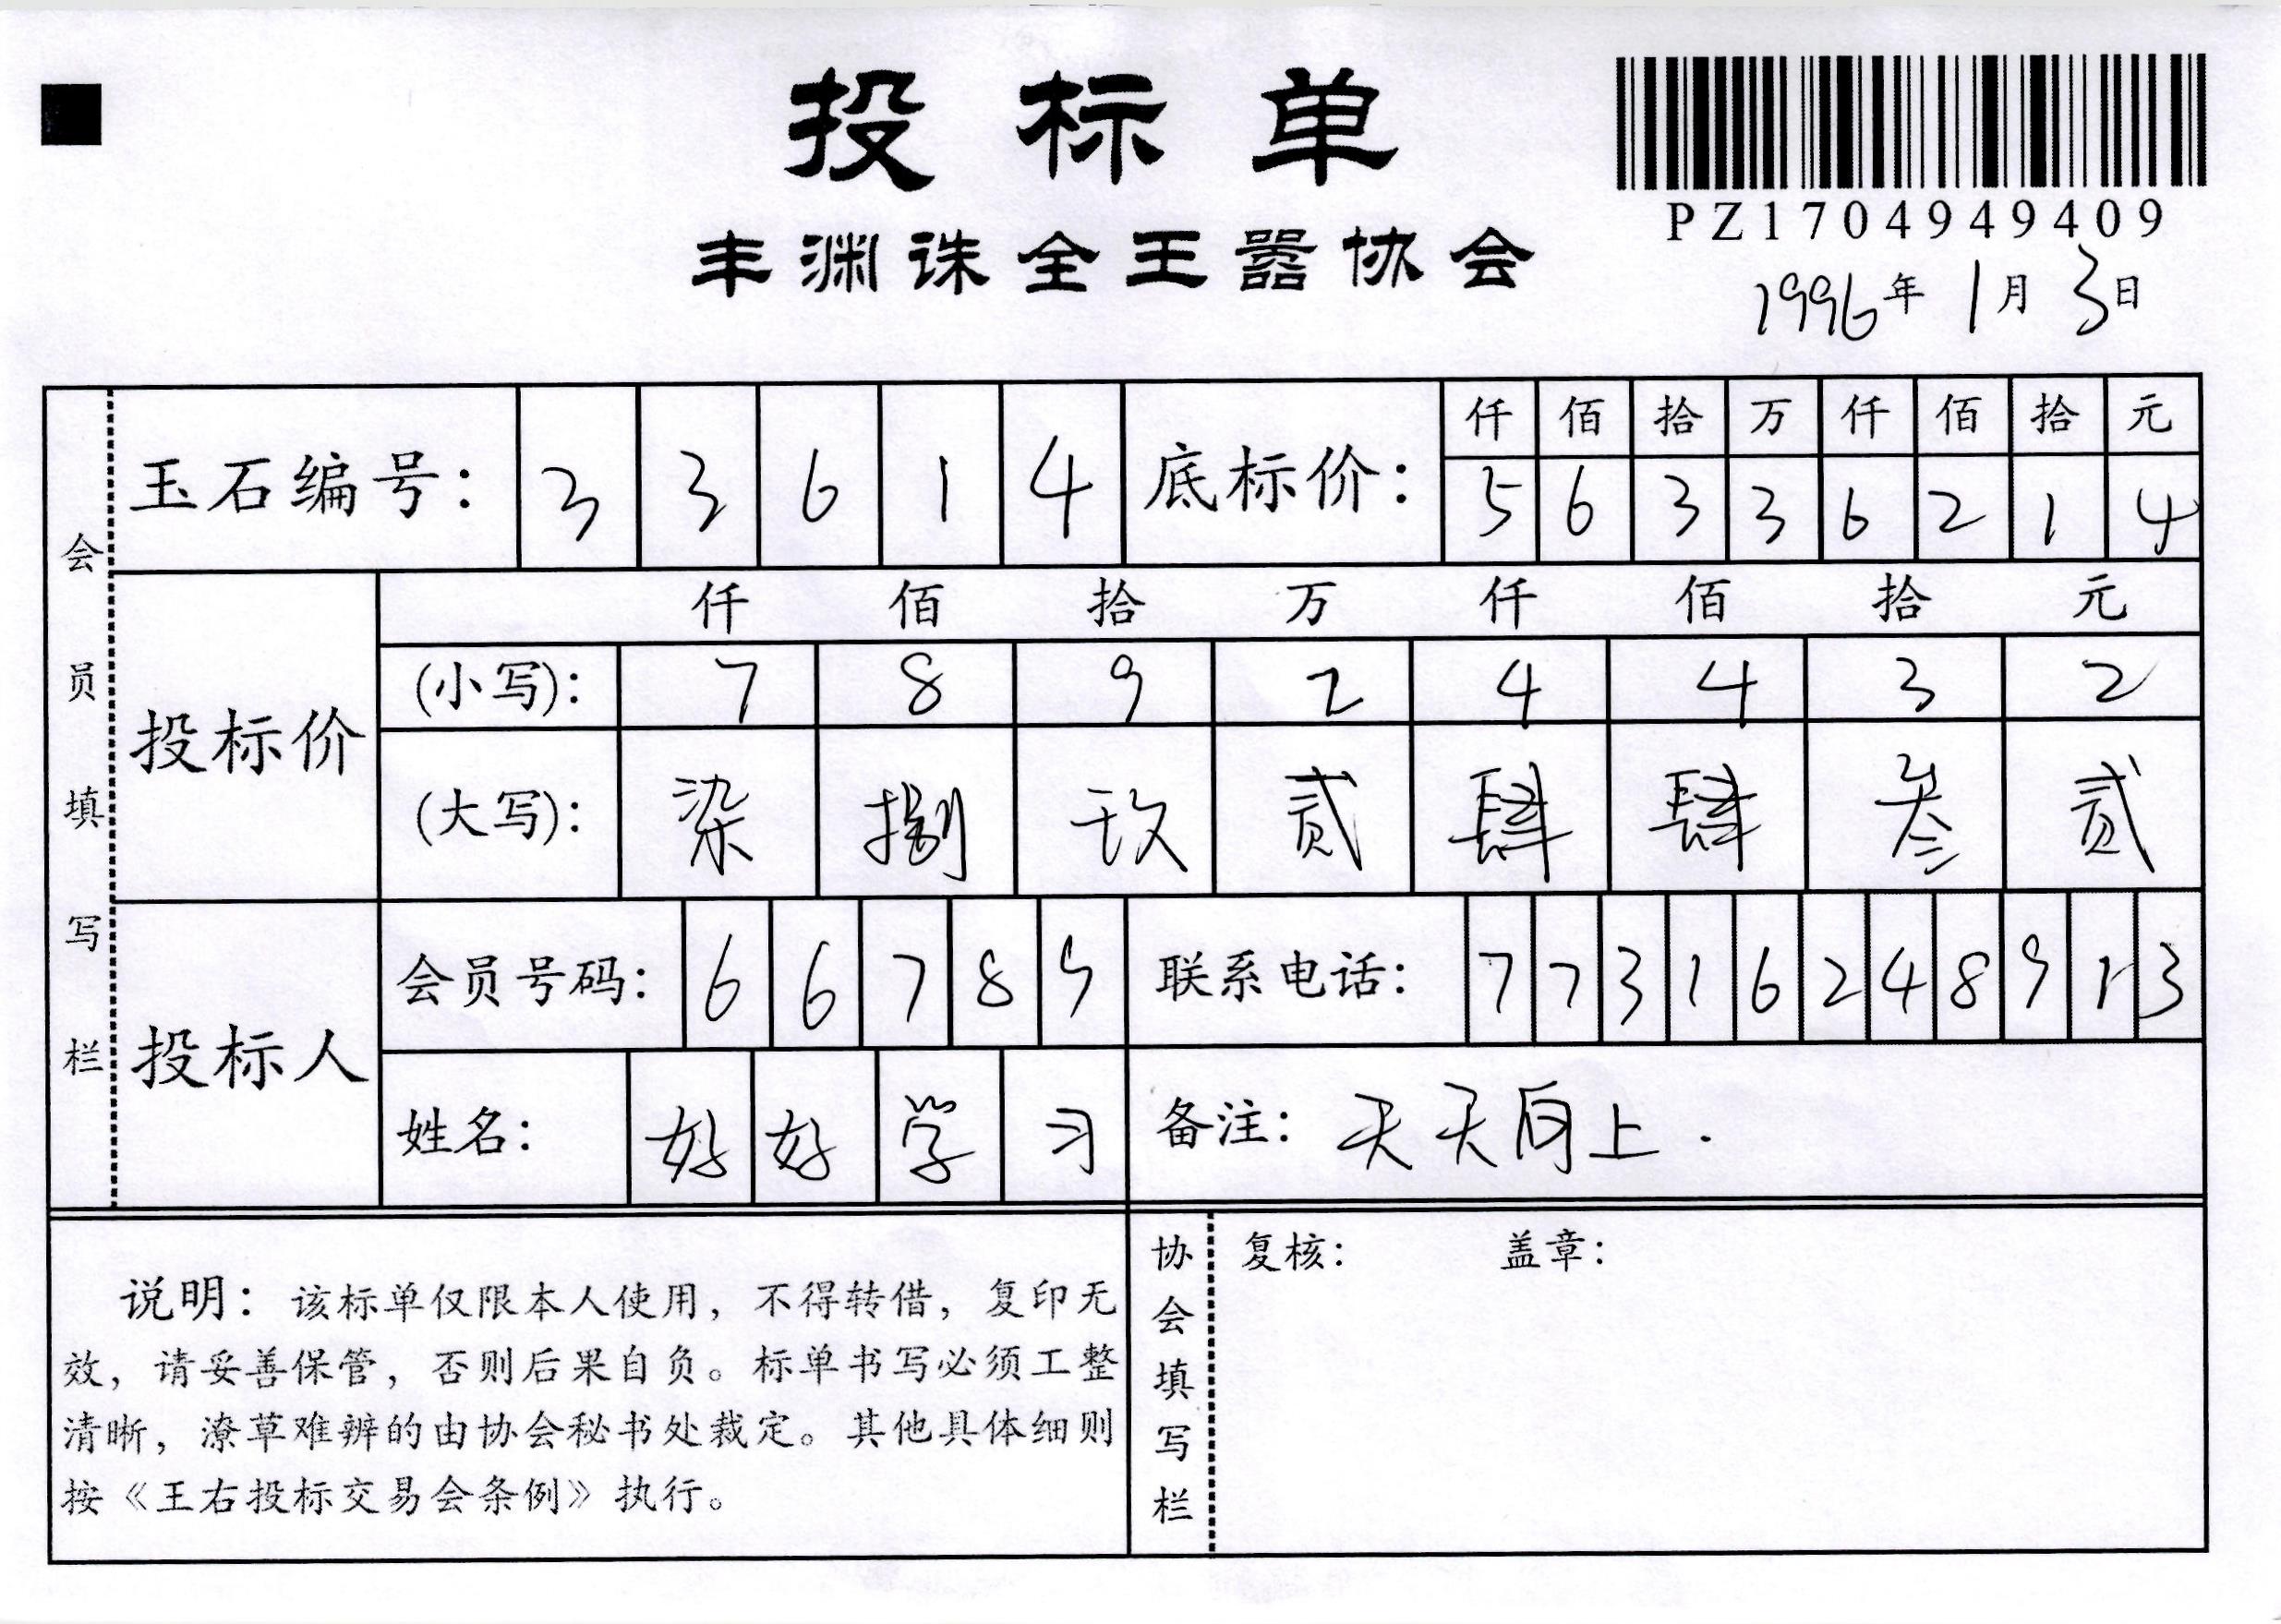 投标单
PZ1704949409
丰渊诛全王嚣协会
1996年1月3日
会员填写栏
玉石编号: 3 3 6 1 4
底标价: 仟 佰 拾 万 仟 佰 拾 元
5 6 3 3 6 2 1 4
投标价
仟 佰 拾 万 仟 佰 拾 元
(小写): 7 8 9 2 4 4 3 2
(大写): 柒 捌 玖 贰 肆 肆 叁 贰
投标人
会员号码: 6 6 7 8 9
联系电话: 7 7 3 1 6 2 4 8 9 1 3
姓名: 好 好 学 习
备注: 天天向上.
说明: 该标单仅限本人使用, 不得转借, 复印无
效, 请妥善保管, 否则后果自负。标单书写必须工整
清晰, 潦草难辨的由协会秘书处裁定。其他具体细则
按《王右投标交易会条例》执行。
协会填写栏
复核: 盖章: